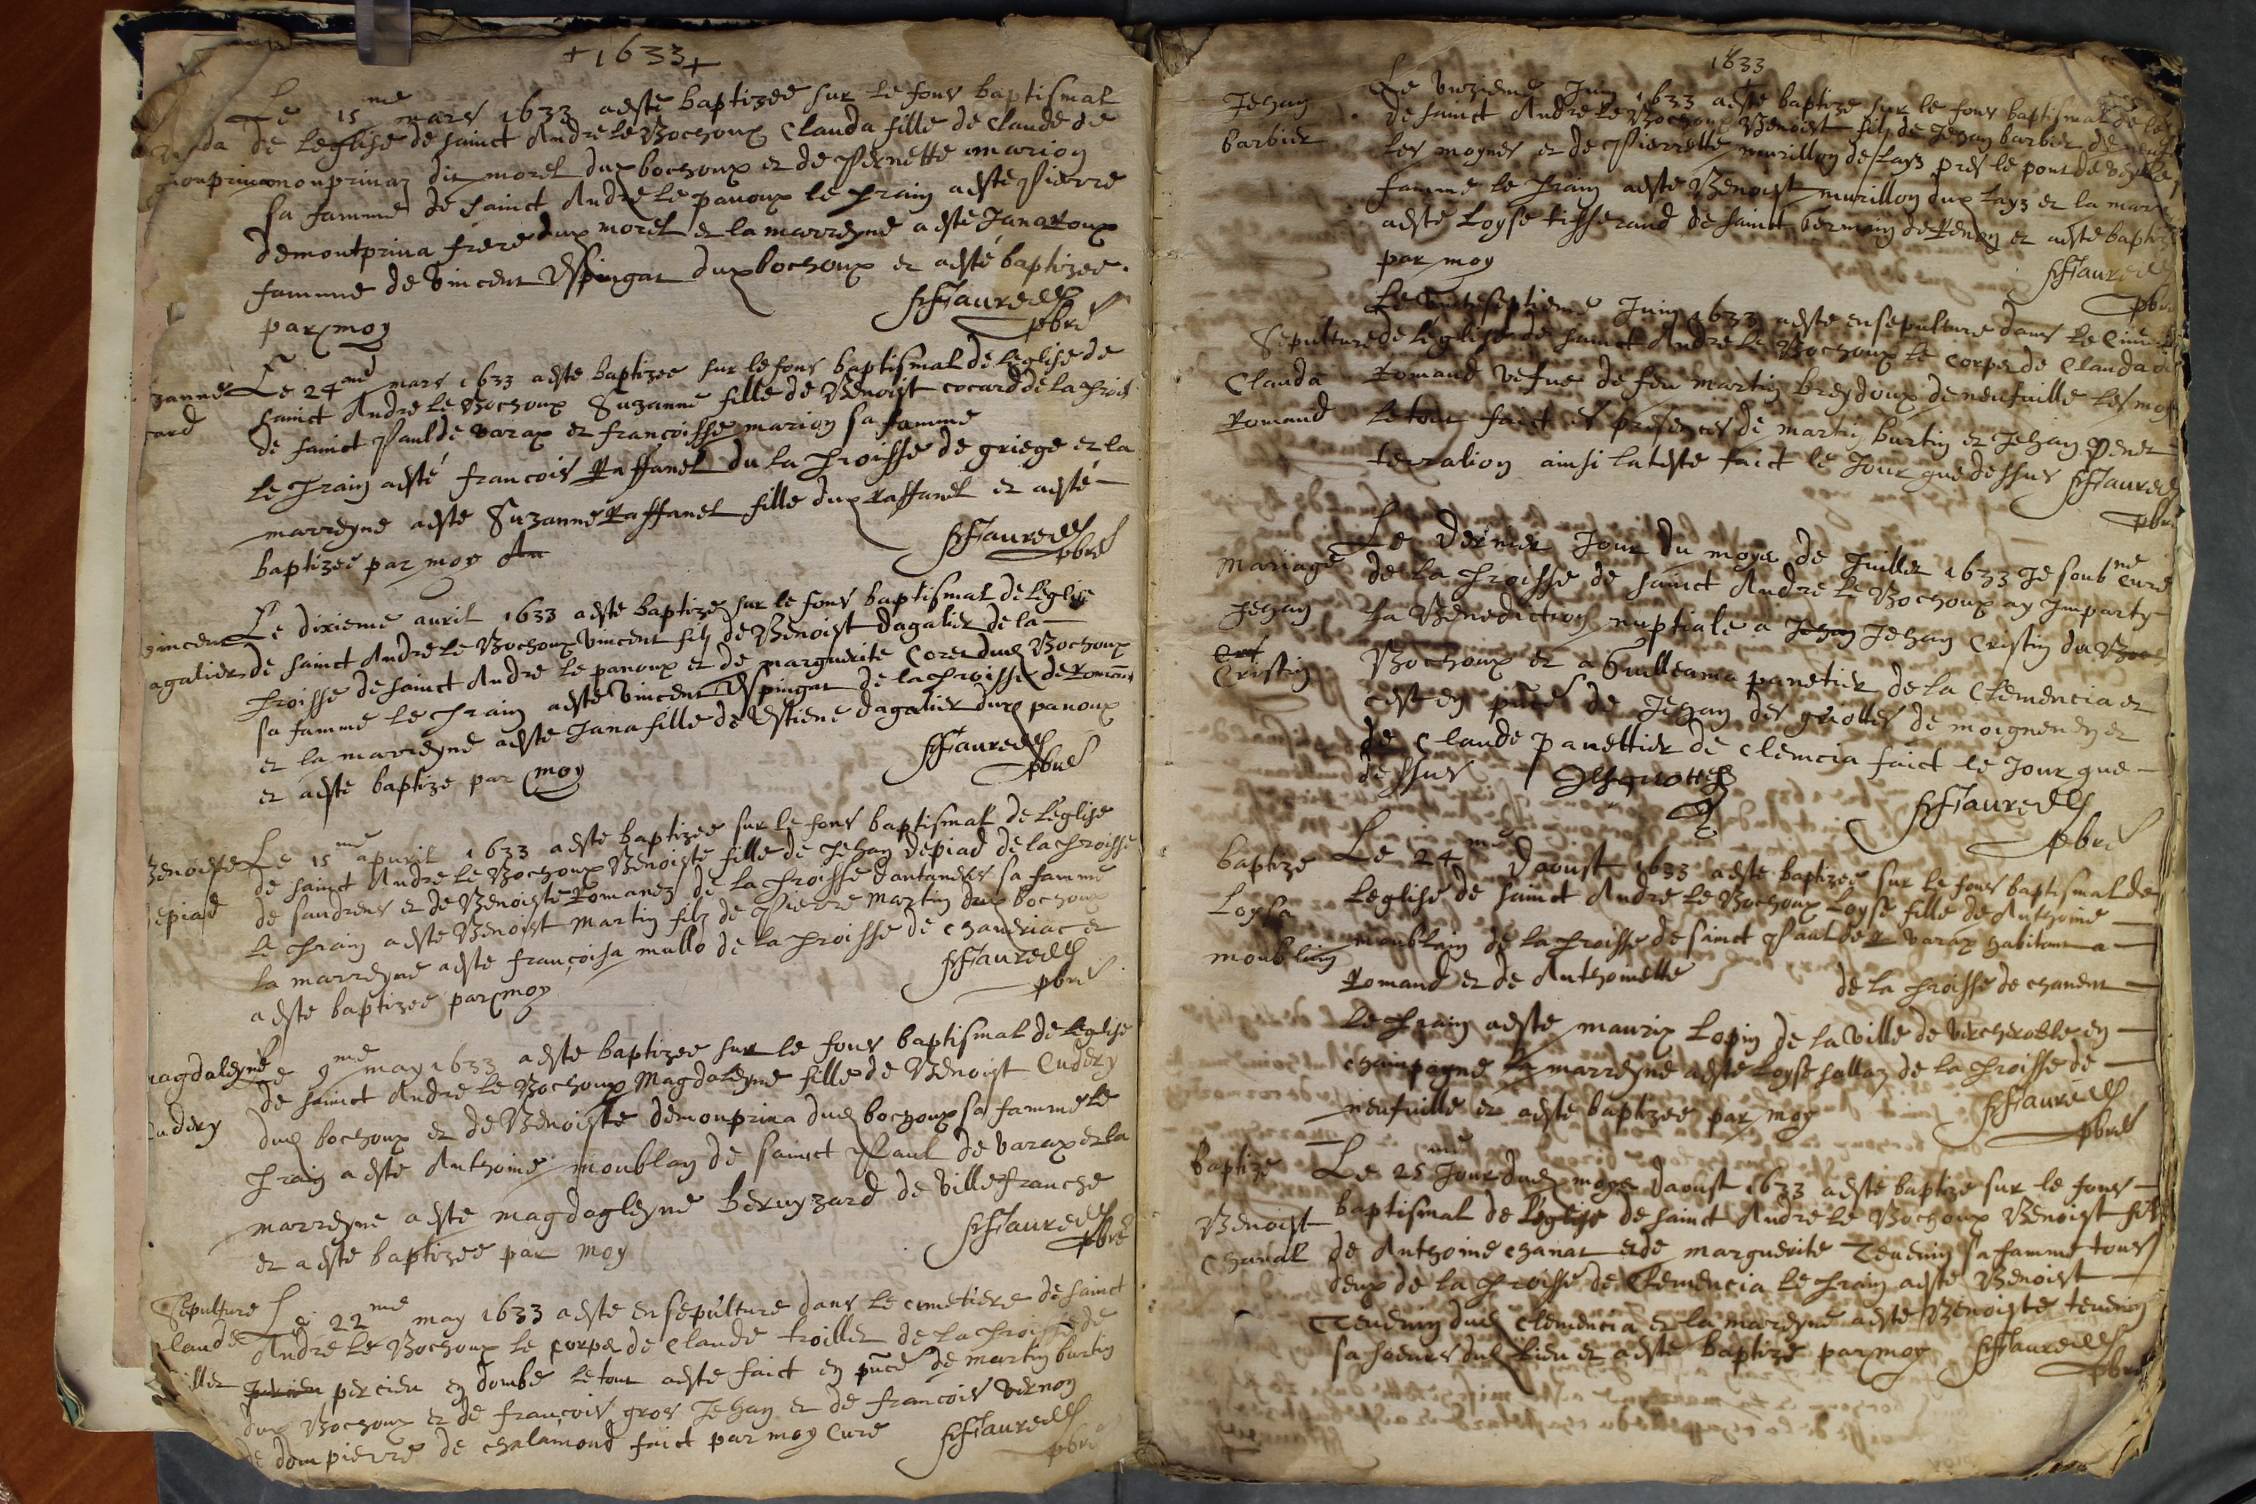 + 1633 +
Le 15me mars 1633 a esté baptizée sur le fons baptismal
de leglise de sainct Andre le Bochoux Clauda fille de Claude de
monprinaz dit morel dud bochoux et de Pernette marion
sa famme de sainct Andre le panoux le Prain a esté Pierre
demontprina frere dud morel et la marreyne a esté Jana Roux
famme de Vincent Espingat dud bochoux et a esté baptizee
par moy
pbre
Le 24me mars 1633 a esté baptizee sur le fons baptismal de leglise de
zanne
card
sainct Andre le Bochoux Suzanne fille de Benoist cocard de la Proiss
de sainct Paul de varax et françoisse marion sa famme
le Prain a esté francois Raffanel du la Proisse de griege et la
marreyne a esté Suzanne Raffanel fille dud Raffanel et a esté
baptizee par moy
pbre
vincent
agalier
Le dixieme auril 1633 a esté baptize sur le fons baptismal de leglise
de sainct Andre le Bochoux Vincent filz de Benoist dagalier de la
Proisse de sainct Andre le panoux et de marguerite Coret dud Bochoux
sa famme le Prain a esté vincent Espingat de la Proisse de Romans
et la marreyne a esté Jana fille de Estiene dagalier dud panoux
et a esté baptize par moy
pbre
Benoiste
depiad
Le 15me apuril 1633 a esté baptizee sur le fons baptismal de leglise
de sainct Andre le Bochoux Benoiste fille de Jehan depiad de la Proisse
de sandrens et de Benoiste Romanez de la Proisse sa famme
le Prain a esté Benoist Martin filz de Pierre Martin dud bochoux
la marreyne a esté françoisa mullo de la Proisse de chaueriac et
a esté baptizee par moy
pbre
magdaleyne
Cudery
Le 9me may 1633 a esté baptizee sur le fons baptismal de leglise
de sainct Andre le Bochoux Magdaleyne fille de Benoist Cudery
dud bochoux et de Benoiste demonprina dud bochoux sa famme le
Prain a esté Anthoine moublan de sainct Paul de varax et la
marreyne a esté magdagleyne beruyzard de villefranche
et a esté baptizee par moy
pbre
Sepulture
laude
illet
Le 22me may 1633 a esté ensepulture dans le cimetiere de sainct
Andre le Bochoux le corps de Claude troillet de la Proisse de
percieu en dombe le tout a esté faict en pnce de martin burtin
dud Bochoux et de francois gros Jehan et de francois vernon
de dompierre de chalamond faict par moy Curé
pbre
1633
Jehan
barbier
Le vnzieme Juin 1633 a esté baptize sur le fons baptismal de leg
de sainct Andre le Bochoux Benoist filz de Jehan barbier de neuf
les moynes et de Pierrette murillon de layz pres le pont de veyle
famme le Prain a esté Benoist murillon dud layz et la marr
a esté Loyse tisserand de sainct Germain de Renon et a esté baptiz
par moy
pbre
Sepulture
Clauda
Romand
Le vintzseptieme Juin 1633 a esté ensepulture dans le Cime
de leglise de sainct Andre le Bochoux le corps de Clauda
Romand vefue de feu martin breydoux de neufuille les moy
le tout faict es presences de martin burtin et Jehan Penet
terralion ainsi lateste faict le Jour que dessus
pbre
Mariage
Jehan
Cristin
Le dernier Jour du moys de Juillet 1633 Je soubme Curé
de la Proisse de sainct Andre le Bochoux ay Imparty
la Benediction nuptiale a Jehan Jehan Cristin du Boch
Bochoux et a Guilleama panetier de la Clemencia et
cest en pnce de Jehan des griottes de moigneneyn et
de Claude panettier de clemcia faict le Jour que
dessus
pbre
baptize
Loysa
moublain
Le 24me daoust 1633 a esté baptizee sur le fons baptismal de
leglise de sainct Andre le Bochoux Loyse fille de Anthoine
moublain de la Proisse de sainct Paul de varax habitant a
Romand et de Anthoinette de la Proisse de chanent
le Prain a esté maurix Lopin de la ville de en
champagne la marreyne a esté Loyse sallaz de la Proisse de
neufuille et a esté baptizee par moy
pbre
baptize
Benoist
Chanal
Le 25me Jour dud moys daoust 1633 a esté baptize sur le fons
baptismal de leglise de sainct Andre le Bochoux Benoist filz
de Anthoine chanat et de marguerite Teuenin sa famme tous
deux de la Proisse de Clemencia le Prain a esté Benoist
Teuenin dud Clemencia et la mareyne a esté Benoiste teuenin
sa soeurs dud lieu et a esté baptize par moy
pbre